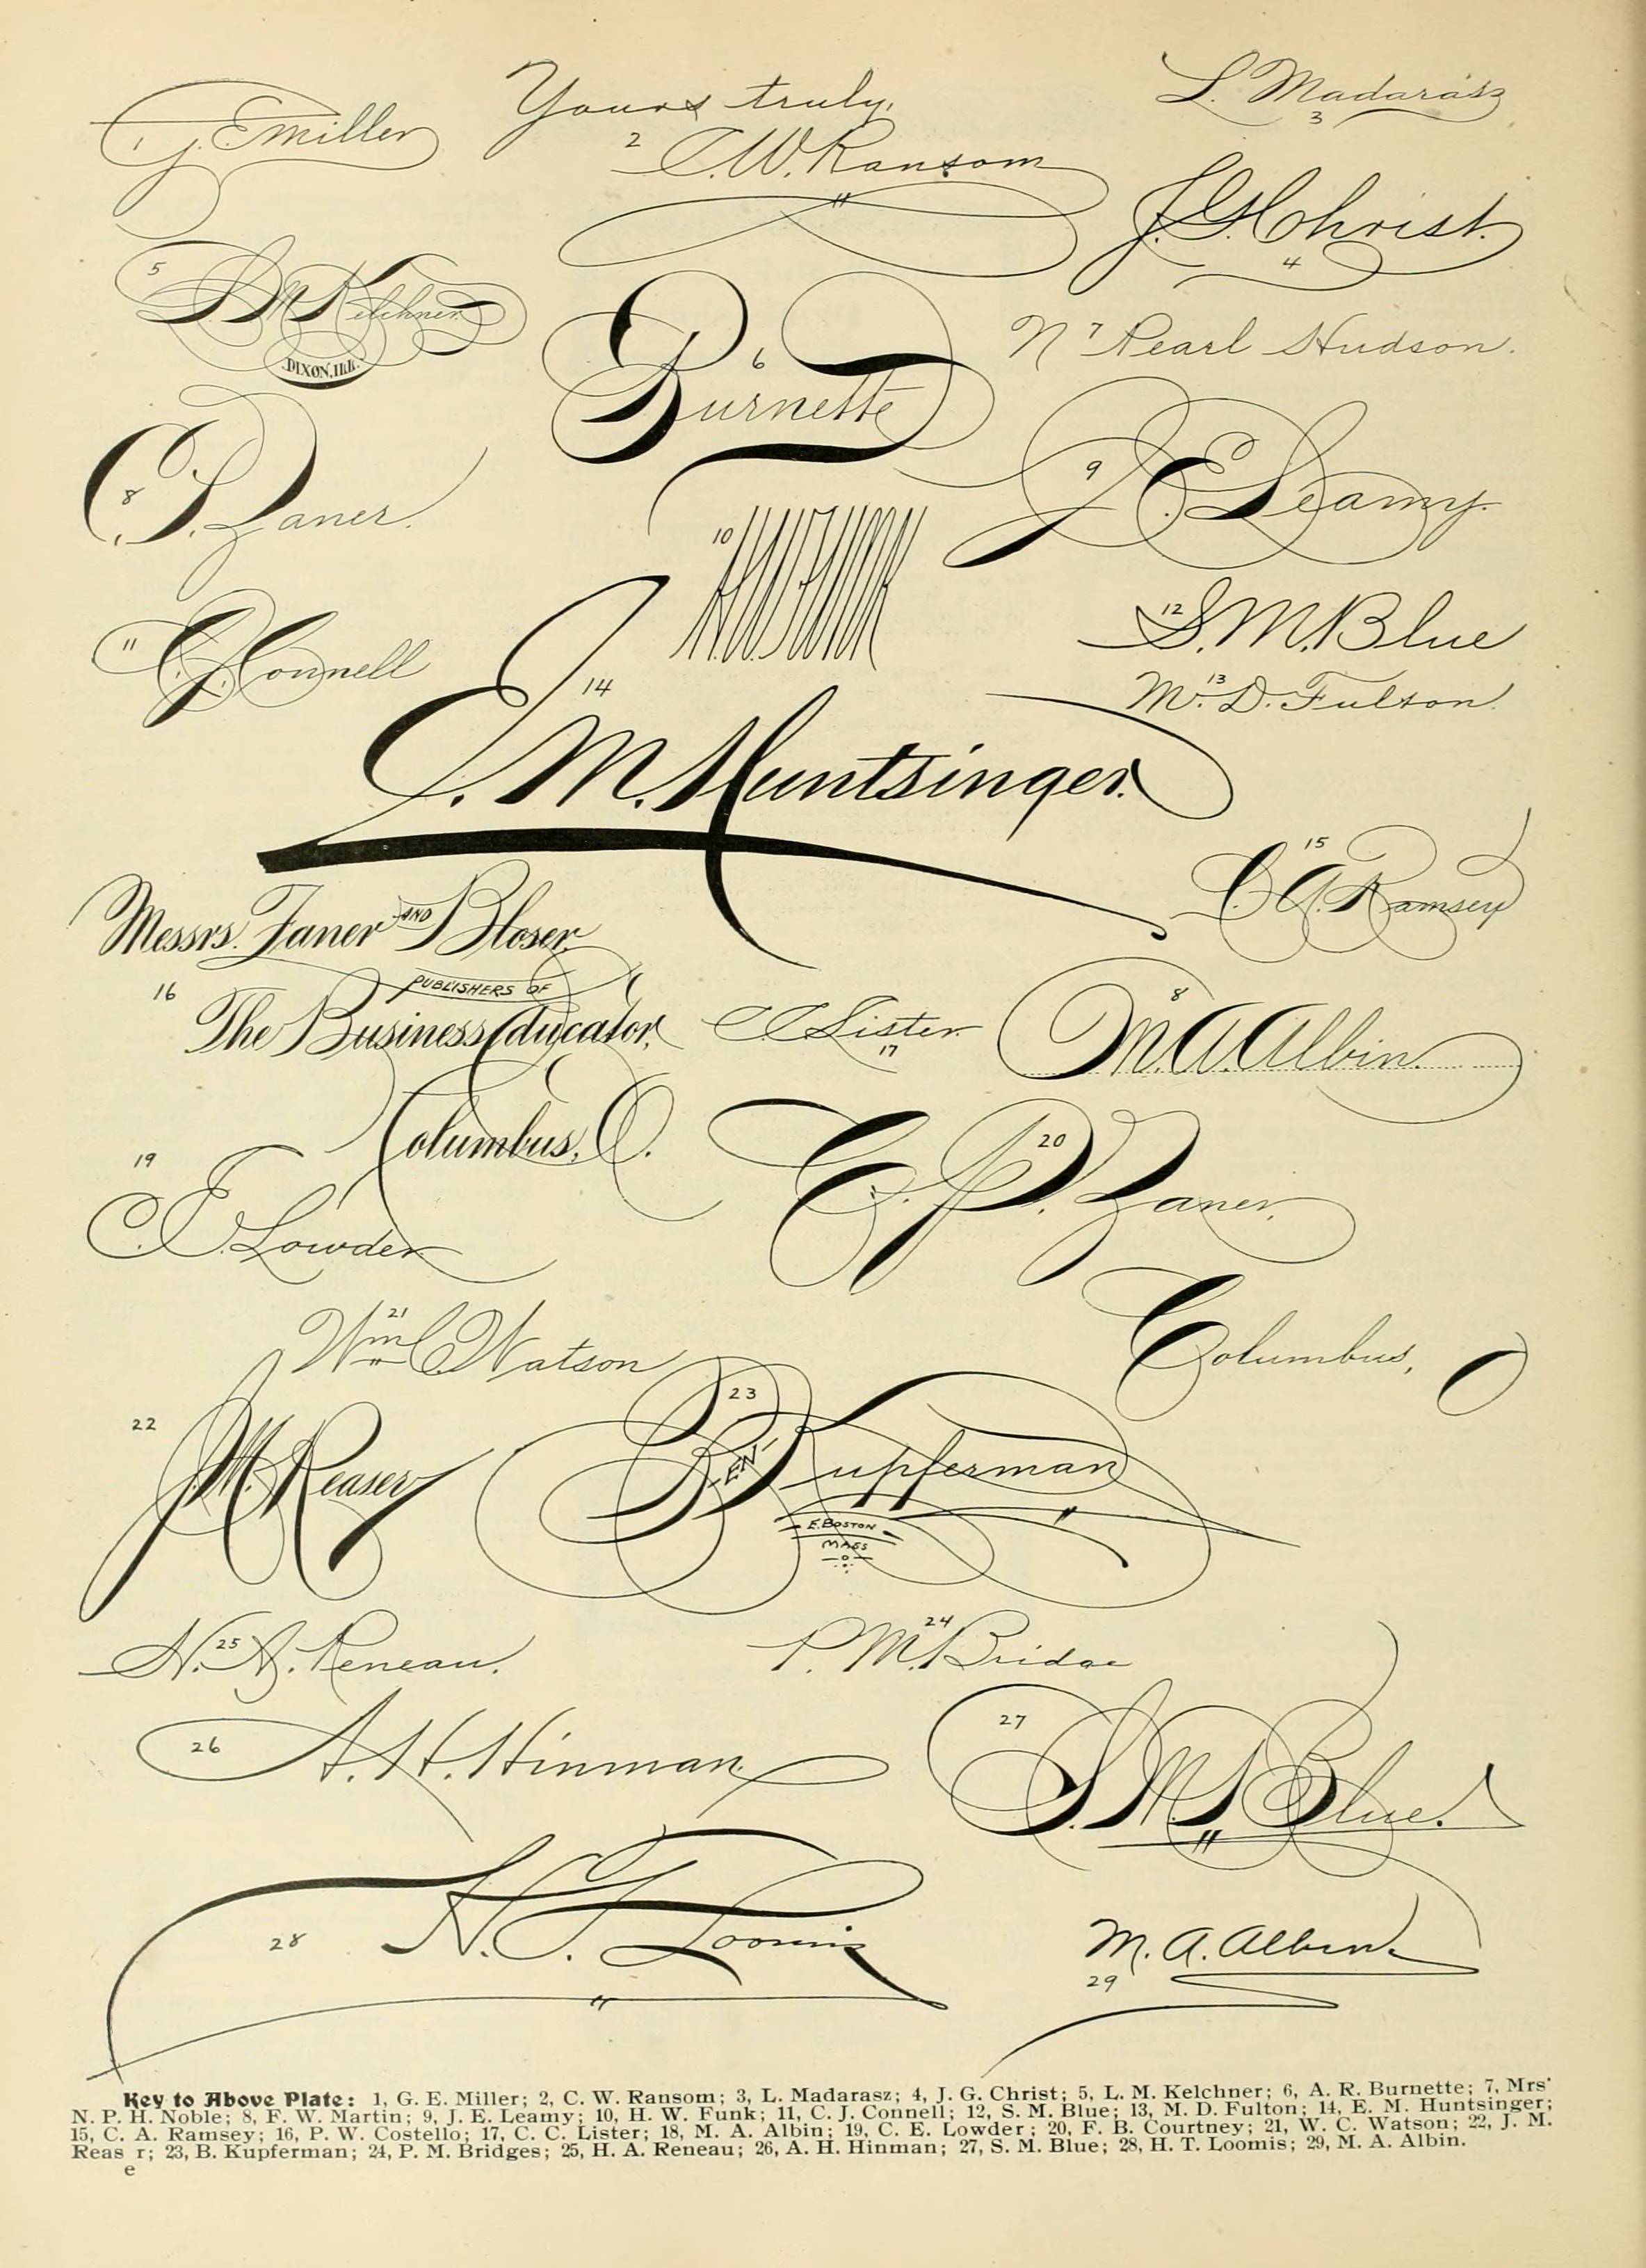 1 G. E. Miller
Yours truly,
2 C. W. Ransom
L. Madarasz
3
J. G. Christ.
4
5 L. M. Kelchner.
DIXON, ILL.
6 Burnette
N 7 Pearl Hudson.
8 C. P. Zaner.
9 J. E. Leamy.
10 H. W. FUNK
11 C. J. Connell
12 S. M. Blue
13
M. D. Fulton.
14
E. M. Huntsinger.
15
C. A. Ramsey
Messrs. Zaner AND Bloser,
PUBLISHERS OF
16 The Business Educator,
Columbus, O.
C C Lister.
17
8
M. A. Albin.
19
C. E. Lowder
20
C. P. Zaner,
Columbus, O
21
Wm C. Watson
22
J. M. Reaser
23
BEN Kupferman
E. BOSTON
MASS
24
P. M. Bridge
25
H. A. Reneau.
26 A. H. Hinman.
27
S. M. Blue.
28 H. T. Loomis
M. A. Albin.
29
Key to Above Plate: 1, G. E. Miller; 2, C. W. Ransom; 3, L. Madarasz; 4, J. G. Christ; 5, L. M. Kelchner; 6, A. R. Burnette; 7, Mrs'
N. P. H. Noble; 8, F. W. Martin; 9, J. E. Leamy; 10, H. W. Funk; 11, C. J. Connell; 12, S. M. Blue; 13, M. D. Fulton; 14, E. M. Huntsinger;
15, C. A. Ramsey; 16, P. W. Costello; 17, C. C. Lister; 18, M. A. Albin; 19, C. E. Lowder; 20, F. B. Courtney; 21, W. C. Watson; 22, J. M.
Reas r; 23, B. Kupferman; 24, P. M. Bridges; 25, H. A. Reneau; 26, A. H. Hinman; 27, S. M. Blue; 28, H. T. Loomis; 29, M. A. Albin.
e